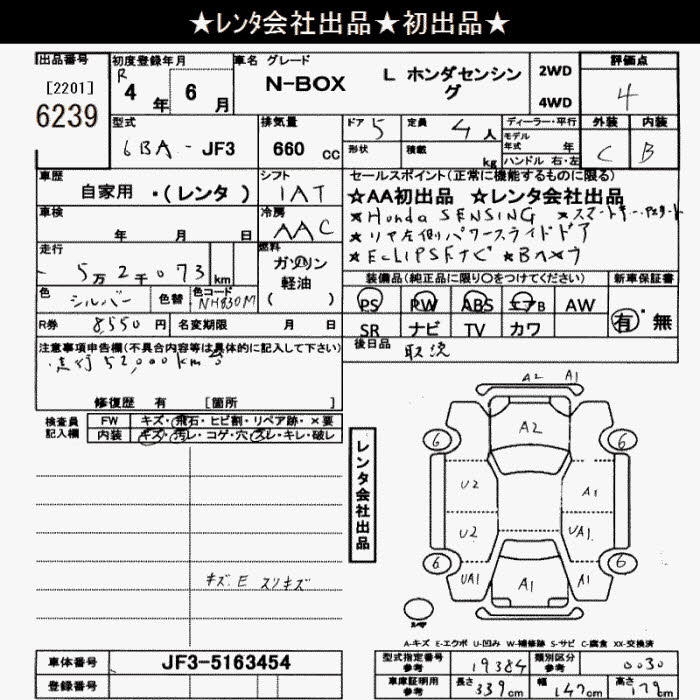 ★レンタ会社出品★初出品★
出品番号
[2201]
6239
初度登録年月
R
4 年 6 月
車名 グレード
N-BOX
L ホンダセンシング
2WD
4WD
評価点
4
型式
6BA - JF3
排気量
660 cc
ドア 5
形状
定員 4人
積載 kg
ディーラー・平行
モデル年式 年
ハンドル 右・左
外装 C
内装 B
車歴
自家用 ・(レンタ)
シフト
IAT
セールスポイント(正常に機能するものに限る)
★AA初出品 ★レンタ会社出品
★Honda SENSING
★リヤ左側パワースライドドア
★Bカメラ
車検
年 月 日
冷房
AAC
走行
5万2千073 km
燃料
ガソリン
軽油
( )
色
シルバー
色替
色コード
NH830M
装備品(純正品に限り○をつけてください)
PS PW ABS エアB AW
SR ナビ TV カワ
新車保証書
有・無
R券 8550 円
名変期限 月 日
後日品
取説
注意事項申告欄(不具合内容等は具体的に記入して下さい)
52,000km
修復歴 有 [箇所 ]
検査員記入欄
FW キズ・飛石・ヒビ割・リペア跡・×要
内装 キズ・汚レ・コゲ・穴・スレ・キレ・破レ
レンタ会社出品
キズ、E スリキズ
A2 A1
A2
6 6
U2 A1
U2 UA1
6 6
UA1 A1 A1
A-キズ E-エクボ U-凹み W-補修跡 S-サビ C-腐食 XX-交換済
車体番号 JF3-5163454
登録番号
型式指定番号 参考 19384
類別区分 参考 0030
車庫証明用 参考
長さ 339 cm
幅 147 cm
高さ 179 cm